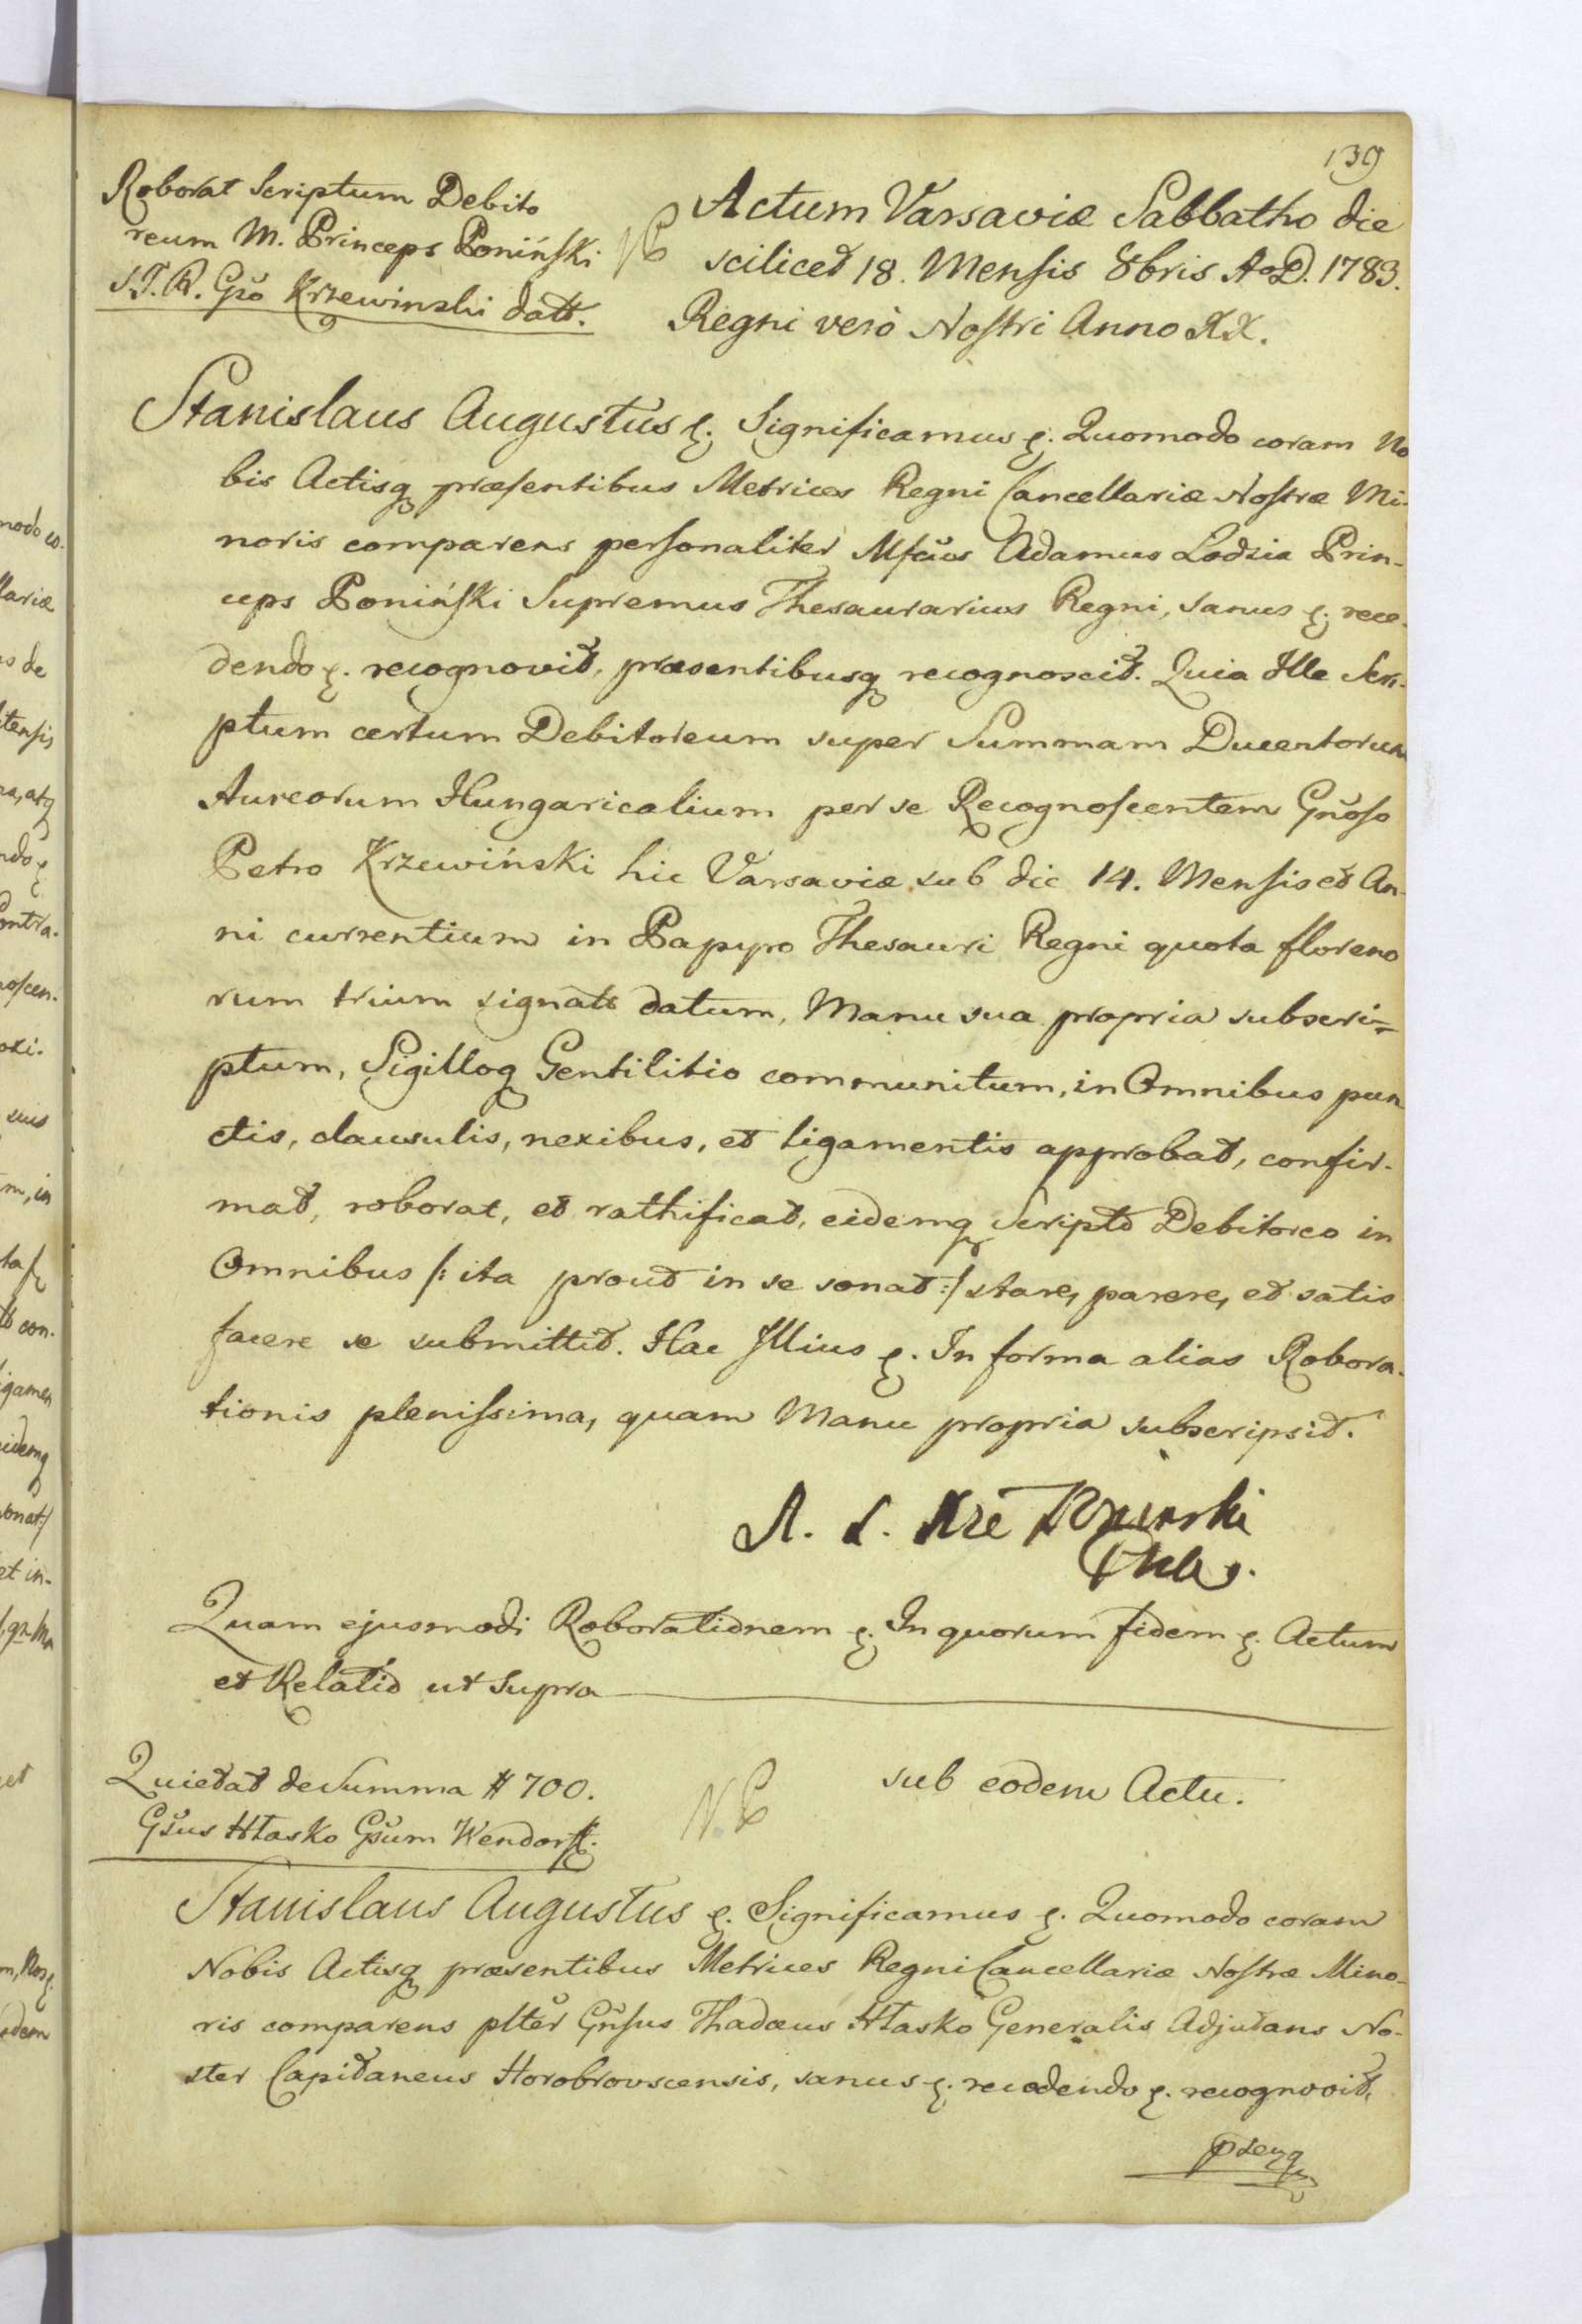 139
Roborat Scriptum Debito
reum M. Princeps Poniński
S.T.R. Gso Krzewinski datt.
Actum Varsaviæ Sabbatho die
sciliced 18. Mensis 8bris A.D. 1783.
Regni verò Nostri Anno XX.
Stanislaus Augustus &. Significamus &. Quomodo coram No
bis Actisq præsentibus Metrices Regni Cancellariæ Nostræ Mi-
noris comparens personaliter Mfcus Adamus Lodzia Prin-
ceps Poniński Supremus Thesaurarius Regni, sanus &. rece-
dendo &. recognovit, præsentibusq recognoscit. Quia Ille Scri-
ptum certum Debitoreum super Summam Ducentorum
Aureorum Hungaricalium per se Recognoscentem Gnoso
Petro Krzewiński hic Varsaviæ sub die 14. Mensis et An-
ni currentium in Papyro Thesauri Regni quota floreno
rum trium signato datum, Manu sua propria subscri-
ptum, Sigilloq Gentilitio communitum, in Omnibus pun
ctis, clausulis, nexibus, et ligamentis approbat, confir-
mat, roborat, et rathificat, eidemq Scripto Debitoreo in
Omnibus /: ita prout in se sonat :/ stare, parere, et satis
facere se submittit. Hac Illius &. In forma alias Robora-
tionis plenissima, quam Manu propria subscripsit.
A. L. Xże Poninski
Quam ejusmodi Roborationem &. In quorum fidem &. Actum
et Relatio ut supra
Quietat de Summa # 700.
Gsus Hłasko Gsum Wendorff.
sub eodem Actu.
Stanislaus Augustus &. Significamus &. Quomodo coram
Nobis Actisq præsentibus Metrices Regni Cancellariæ Nostræ Mino-
ris comparens plter Gnsus Thadæus Hłasko Generalis Adjutans No-
ster Capitaneus Horobrovscensis, sanus &. recedendo &. recognovit,